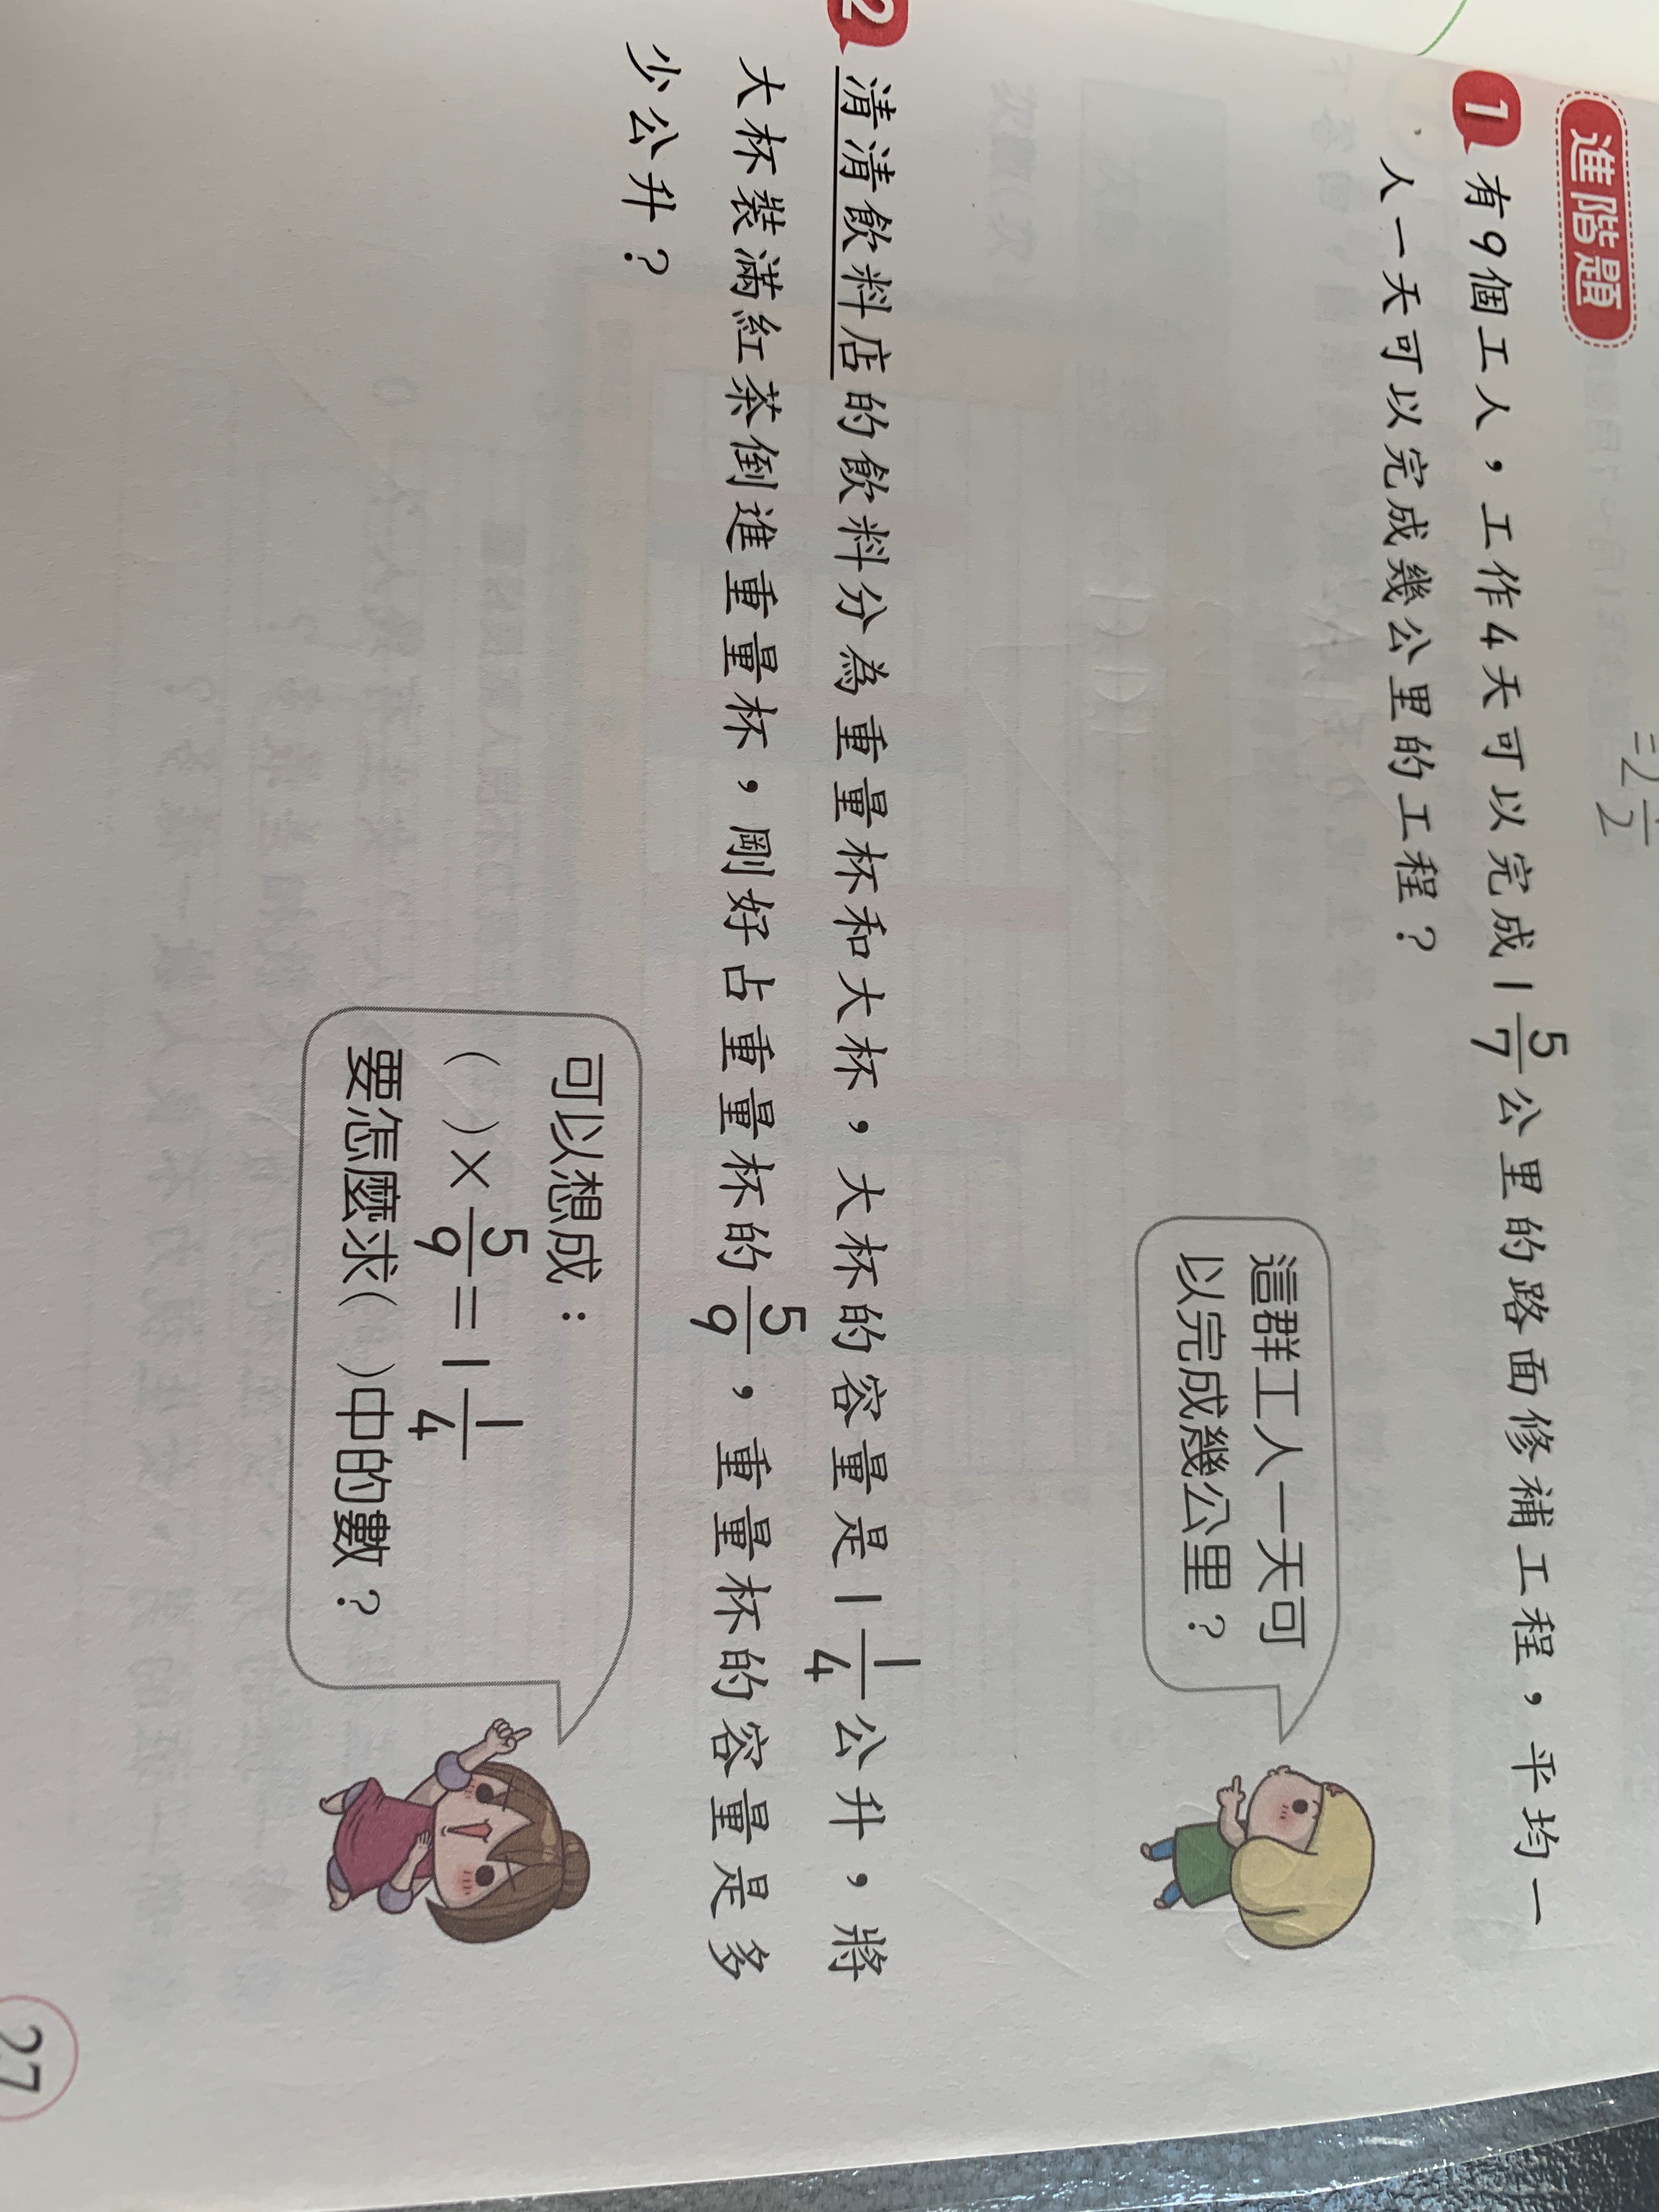 進階題
1 有9個工人，工作4天可以完成1 5/7公里的路面修補工程，平均一
人一天可以完成幾公里的工程？
這群工人一天可
以完成幾公里？
2 清清飲料店的飲料分為重量杯和大杯，大杯的容量是1 1/4公升，將
大杯裝滿紅茶倒進重量杯，剛好占重量杯的5/9，重量杯的容量是多
少公升？
可以想成：
( )×5/9=1 1/4
要怎麼求( )中的數？
27